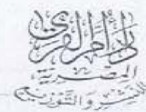 دار أم القرى
المصرية
للنشر والتوزيع